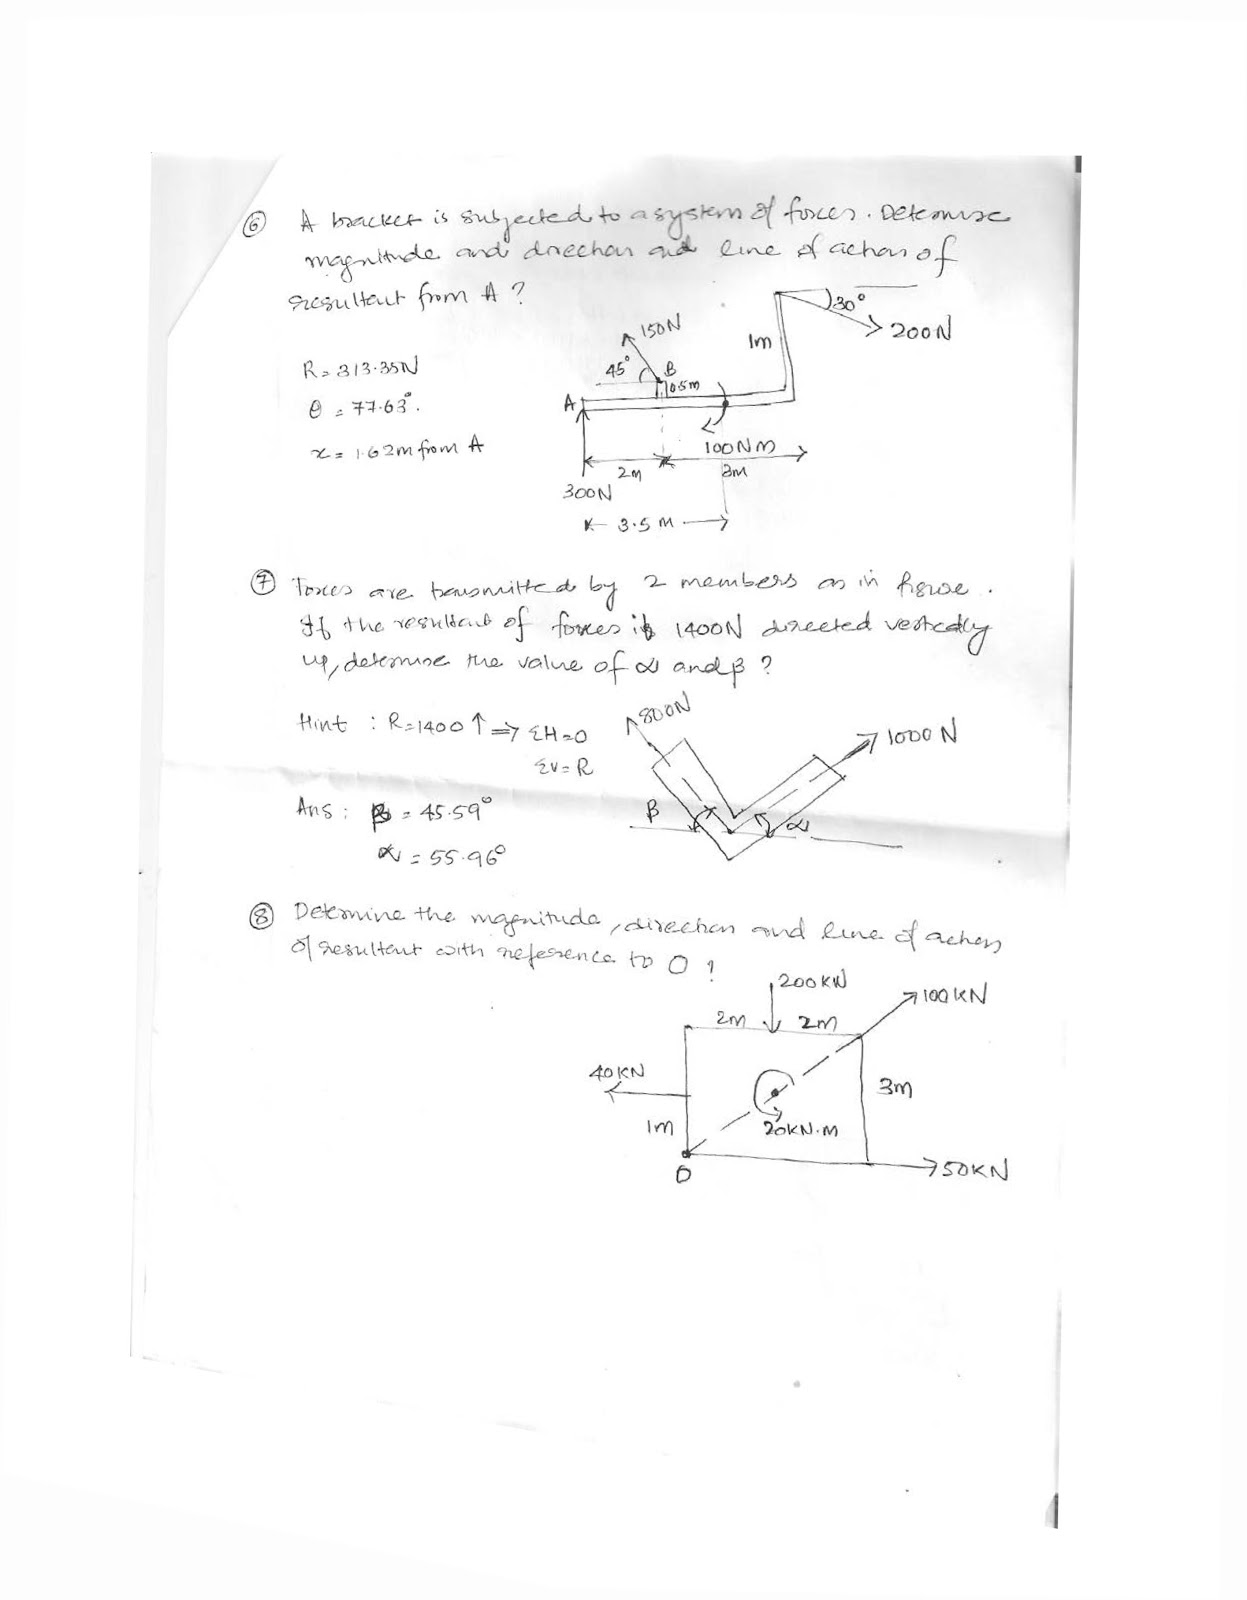 ⑥ A bracket is subjected to a system of forces. Determine
magnitude and direction and line of action of
resultant from A ?
R = 313.35N
θ = 77.63°.
x = 1.62m from A
150N
45°
B
0.5m
1m
30°
200N
A
100NM
2m
3m
300N
3.5 M
⑦ Forces are transmitted by 2 members as in figure.
If the resultant of forces is 1400N directed vertically
up, determine the value of α and β ?
Hint : R=1400 ↑ ⇒ ΣH=0
ΣV=R
Ans : β = 45.59°
α = 55.96°
800N
1000 N
β
α
⑧ Determine the magnitude, direction and line of action
of resultant with reference to O ?
200KN
100KN
2m
2m
40KN
3m
1m
20KN.M
O
50KN